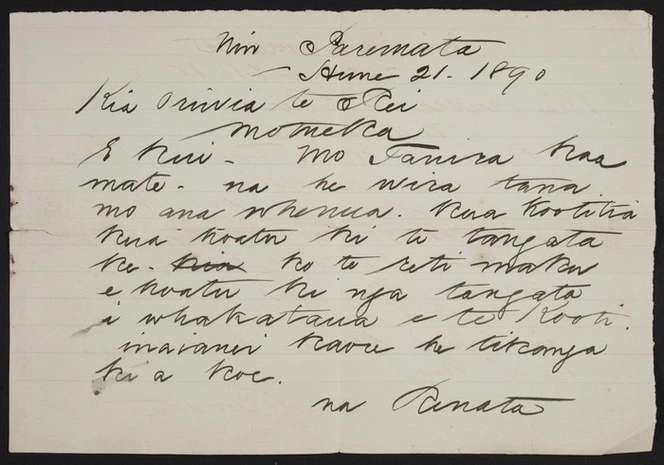 Paremata
Hune 21. 1890
Kia te Rei
Motueka
E Kui - Mo Tanira kaa
mate. na he wira tana
mo ana whenua. kua kootitia
kua hoatu ki te tangata
ke. kia ko te reti maku
e hoatu ki nga tangata
i whakataua e te Kooti.
inaianei kaore he tikanga
ki a koe.
na Renata